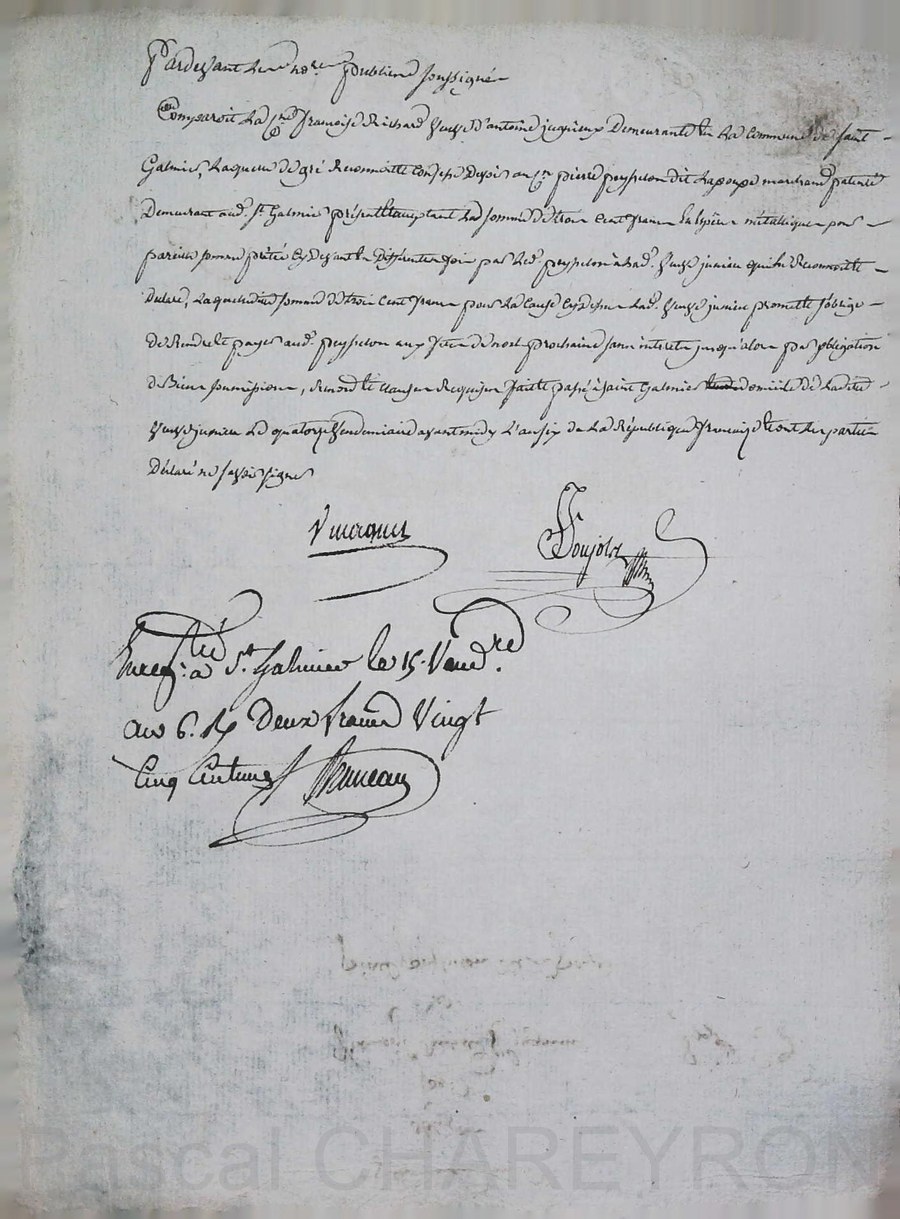 Pardevant les no.re publics soussigné
Comparoit la C.ne françoise Richard veuve d'antoine juquieux demeurante en la commune de saint
Galmier, laquelle de gré reconnoitt et confesse devoir au C.n pierre peysselon dit Lapoupe marchand patenté
demeurant aud. S.t Galmier présent acceptant la somme de trois cent francs en espèces métalliques pour
pareille somme prêtée cy devant en différentes fois par led. peysselon à lad. veuve jumieu qui le reconnoitt
déclare, laquelle somme de trois cent francs pour la cause cy dessus lad. veuve jumieu promett s'oblige
de rendre et payer aud. peysselon aux fêtes de noel prochaines sans interets jusqu'alors par obligation
de Biens soumissions, renond. et clauses Requises fait et passé à saint Galmier domicile de ladite
veuve jumieu le quatorze vendemiaire avant midy l'an six de la République françoise et ont les parties
déclaré ne savoir signer
Poujols
Enreg.tré à S.t Galmier le 15. Vend.re
an 6. R deux francs Vingt
Cinq Centimes Bruneau
Pascal CHAREYRON